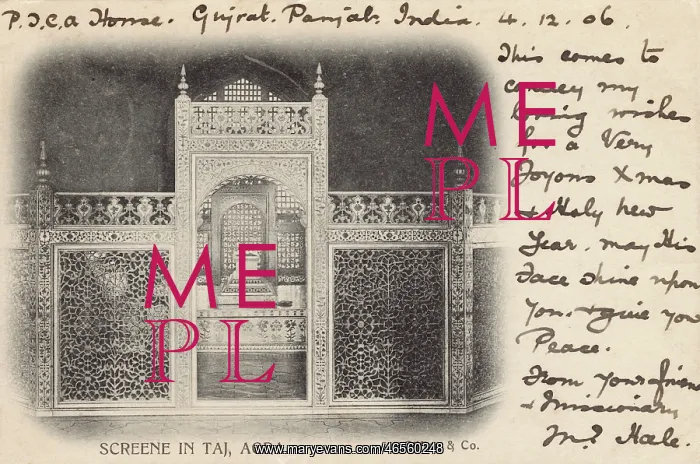 P.J.C.a House. Gujrat. Panjab. India. 4. 12. 06.
This comes to
convey my
loving wishes
for a Very
Joyous Xmas
& Holy New
Year. may His
Face shine upon
you. & give you
Peace.
From your friend
& Missionary
Hale.
ME
PL
ME
PL
SCREENE IN TAJ, & Co.
www.maryevans.com/46560248